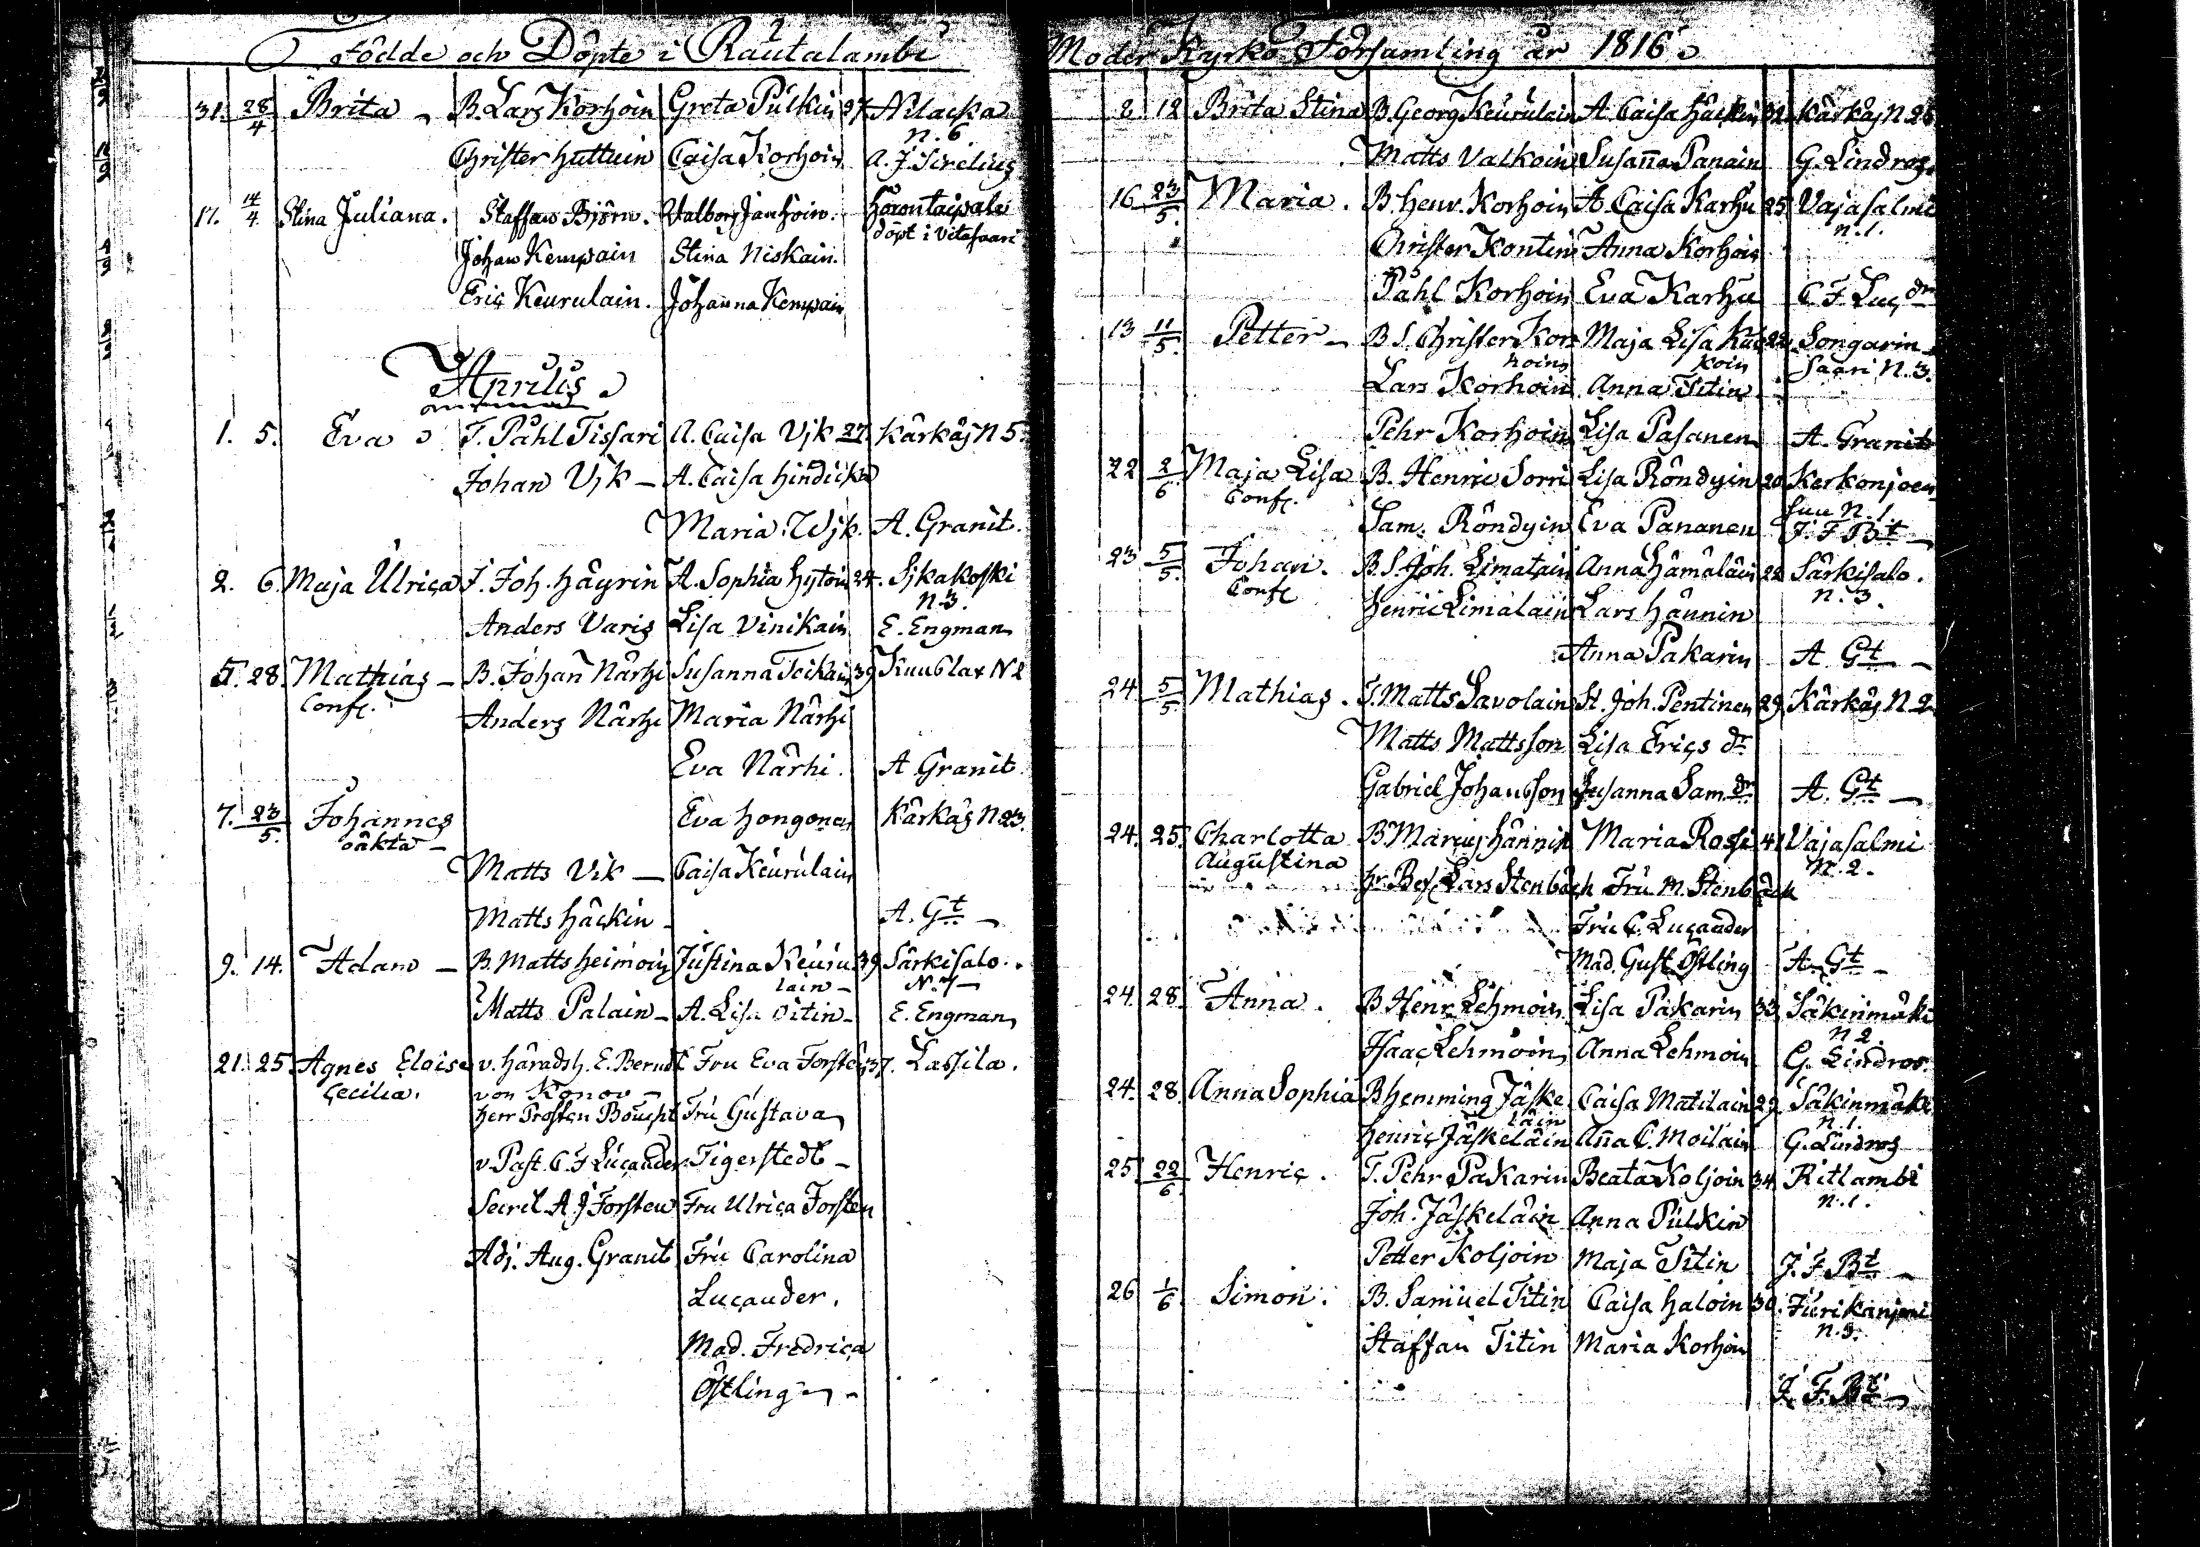 Födde och Döpte i Rautalambi
31. 28/4 Brita - B. Lars Korhoin Greta Pulkin 27. Nilacka
n. 6
Christer Huttuin Caisa Korhoin A. J. Sirelius
17. 14/4 Stina Juliana. Staffan Björn. Valborg Janhoin. Harontaipale
döpt i Vitasaari
Johan Kempain Stina Niskain.
Eric Keurulain. Johanna Kempain
Aprilis
1. 5. Eva T. Påhl Tissari A. Caisa Vjk 27. Kärkäj N 5.
Johan Vjk - A. Caisa Hindicka
Maria Wjk. A. Granit.
2. 6. Maja Ulrica J. Joh. Häyrin A. Sophia Hytöin 24. Sjkakoski
n. 3.
Anders Varis Lisa Vinikain E. Engman
5. 28. Mathias - B. Johan Närhi Susanna Teikain 39 Kuuslax N 2
Conf.
Anders Närhi Maria Närhi
Eva Närhi. A Granit
7. 23/5. Johannes Eva Hongonen Kärkäs N 23.
oäkta -
Matts Vik - Caisa Keurulain
Matts Häckin - A. Gt -
9. 14. Adam - B. Matts Heimoin Justina Keuru 39 Särkisalo.
lain -
Matts Palain - A. Lisa Oitin - E. Engman
21. 25 Agnes Eloise v. Häradsh. E. Berndt Fru Eva Forstén 37. Lassila.
Cecilia. von Konow -
Herr Prosten Boucht Fru Gustava
v. Past. C. F Lucander Tigerstedt -
Secret. A. J Forsten Fru Ulrica Forsten
Adj. Aug. Granit Fru Carolina
Lucander.
Mad. Fredrica
Östling -
Moder Kyrko Församling år 1816
2 12 Brita Stina B. Georg Keurulain A Caisa Häckin 32 Kärkäj N 26
Matts Valkoin Susanna Panain G. Lindros.
16 23/5. Maria. B. Henr. Korhoin A Caisa Karhu 25 Vajasalmi
n. 1.
Christer Kontin Anna Korhoin
Påhl Korhoin Eva Karhu C. F. Luc dr
13 11/5. Petter - B S. Christer Kor- Maja Lisa 22 Songarin
hoin koin Saari N. 3.
Lars Korhoin Anna Titin
Pehr Korhoin Lisa Pasanen A. Granit
22 2/6 Maja Lisa B. Henric Sorri Lisa Röndyin 20 Kerkonjoen
Conf. Suu N. 1.
Sam. Röndyin Eva Pananen J. F Bt -
23 5/5. Johan. B. S. Joh. Limatain Anna Hämäläin 22 Särkisalo.
Conf n. 3.
Henric Limatain Lars Hännin
Anna Pakarin A Gt -
24 5/5. Mathias. T. Matts Savolain St. Joh. Pentinen 29 Kärkäj N. 2
Matts Mattsson Lisa Erics dr
Gabriel Johansson Susanna Sam dr A. Gt -
24. 25. Charlotta B. Marcus Hännin Maria Rossi 41 Vajasalmi
Augustina N. 2.
Hr. Bef. Lars Stenbäck Fru M. Stenbäck
Fru C. Lucander
Mad. Gust Östling A. Gt -
24. 28. Anna. B Henr. Lehmoin Lisa Pakarin 33 Säkinmäki
N 2
Isaac Lehmoin Anna Lehmoin G. Lindros.
24. 28. Anna Sophia B Hemming Jäske Caisa Matilain 29 Säkinmäki
läin n. 1.
Henric Jäskeläin Anna C. Moilain G. Lindros
25. 22/6. Henric. T. Pehr Pakarin Beata Koljoin 34 Ritlambi
n. 1.
Joh. Jäskeläin Anna Pulkin
Petter Koljoin Maja Titin J. F. Bt -
26 1/6 Simon. B. Samuel Titin Caisa Haloin 30.
Staffan Titin Maria Korhoin
J. F. Bt -